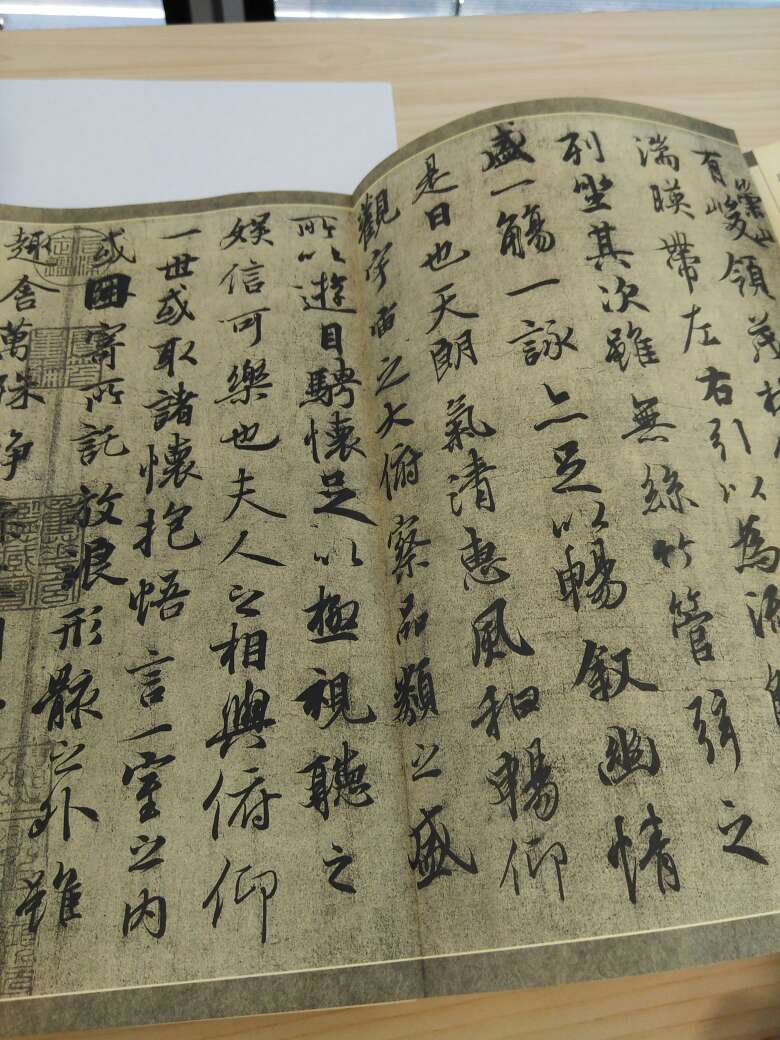 有崇山峻領茂林
湍暎帶左右引以為流觴
列坐其次雖無絲竹管弦之
盛一觴一詠亦足以暢叙幽情
是日也天朗氣清惠風和暢仰
觀宇宙之大俯察品類之盛
所以遊目騁懷足以極視聽之
娛信可樂也夫人之相與俯仰
一世或取諸懷抱悟言一室之内
或因寄所託放浪形骸之外雖
趣舍萬殊静